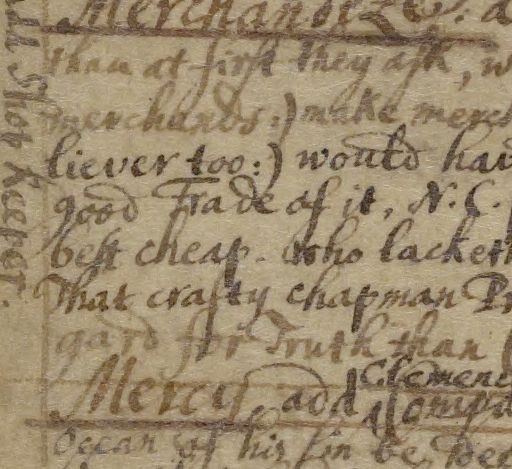 Merchandize &c. a
than at first they ask, w
merchands:) make merch
liever too:) would hav
good Trade of it, N. C.
best cheap. who lacketh
That crafty chapman Pr
gard for Truth than
Mercy add Clemenc
Ocean of his sin be
Shop Keeper.